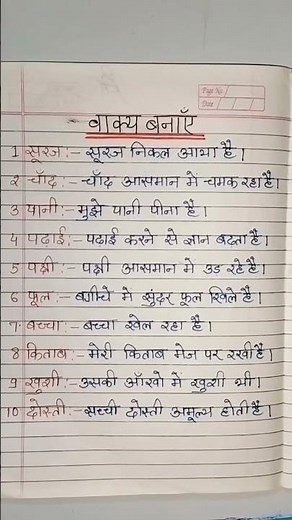 Page No.
Date
वाक्य बनाएँ
1 सूरज :- सूरज निकल आया है।
2 चाँद :- चाँद आसमान में चमक रहा है।
3 पानी :- मुझे पानी पीना है।
4 पढ़ाई :- पढाई करने से ज्ञान बढ़ता है।
5 पक्षी :- पक्षी आसमान मे उड रहे है।
6 फूल :- बगीचे में सुंदर फूल खिले है।
7. बच्चा :- बच्चा खेल रहा है।
8 किताब :- मेरी किताब मेज पर रखी है।
9 खुशी :- उसकी आँखो में खुशी थी।
10 दोस्ती :- सच्ची दोस्ती अमूल्य होती है।